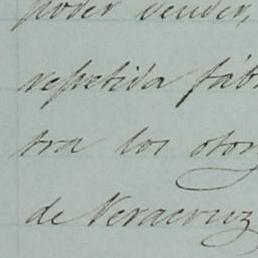 poder vender,
repetida fáb
tra los otor
de Veracruz